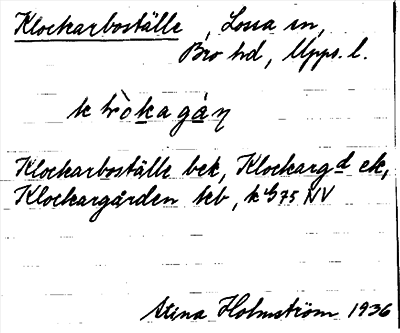 Klockarboställe, Lossa sn,
Bro hd, Upps. l.
Klockarboställe bek, Klockarg d ek,
Klockargården hb, 75 NV
Stina Holmström 1936